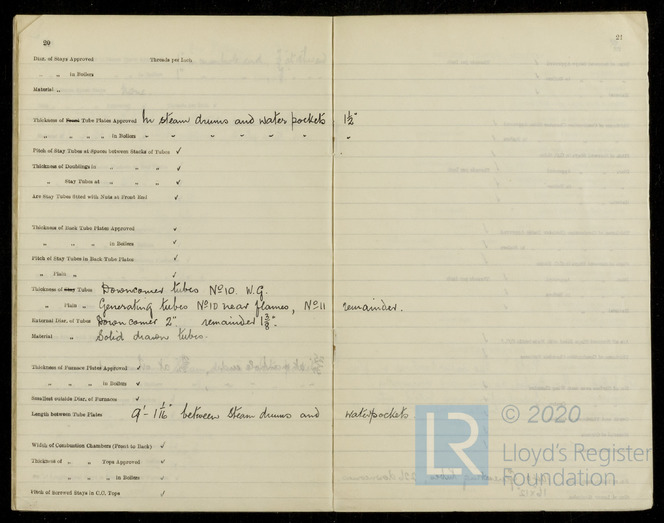 20
21
Diar. of Stays Approved Threads per Inch
„ „ in Boilers
Material „
Thickness of Front Tube Plates Approved In steam drums and water pockets 1½"
„ „ „ „ in Boilers „ „ „ „ „ „ „
Pitch of Stay Tubes at Spaces between Stacks of Tubes ✓
Thickness of Doublings in „ „ „ ✓
„ Stay Tubes at „ „ „ ✓
Are Stay Tubes fitted with Nuts at Front End ✓
Thickness of Back Tube Plates Approved ✓
„ „ „ in Boilers ✓
Pitch of Stay Tubes in Back Tube Plates ✓
„ Plain „ ✓
Thickness of Stay Tubes Downcomer tubes Nº10. W.G.
„ Plain „ Generating tubes Nº10 near flames, Nº11 remainder.
External Diar. of Tubes Downcomer 2". remainder 1⅜".
Material „ Solid drawn tubes.
Thickness of Furnace Plates Approved ✓
„ „ „ in Boilers ✓
Smallest outside Diar. of Furnaces ✓
Length between Tube Plates 9'-1 1/16" between steam drums and waterpockets
Width of Combustion Chambers (Front to Back) ✓
Thickness of „ „ Tops Approved ✓
„ „ „ in Boilers ✓
Pitch of Screwed Stays in C.C. Tops ✓
LR © 2020
Lloyd's Register
Foundation